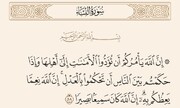 سُورَةُ النِّسَاءِ
بِسْمِ اللَّهِ الرَّحْمَٰنِ الرَّحِيمِ
۞ إِنَّ ٱللَّهَ يَأْمُرُكُمْ أَن تُؤَدُّوا۟ ٱلْأَمَـٰنَـٰتِ إِلَىٰٓ أَهْلِهَا وَإِذَا
حَكَمْتُم بَيْنَ ٱلنَّاسِ أَن تَحْكُمُوا۟ بِٱلْعَدْلِ ۚ إِنَّ ٱللَّهَ نِعِمَّا
يَعِظُكُم بِهِۦٓ ۗ إِنَّ ٱللَّهَ كَانَ سَمِيعًۢا بَصِيرًا ٥٨